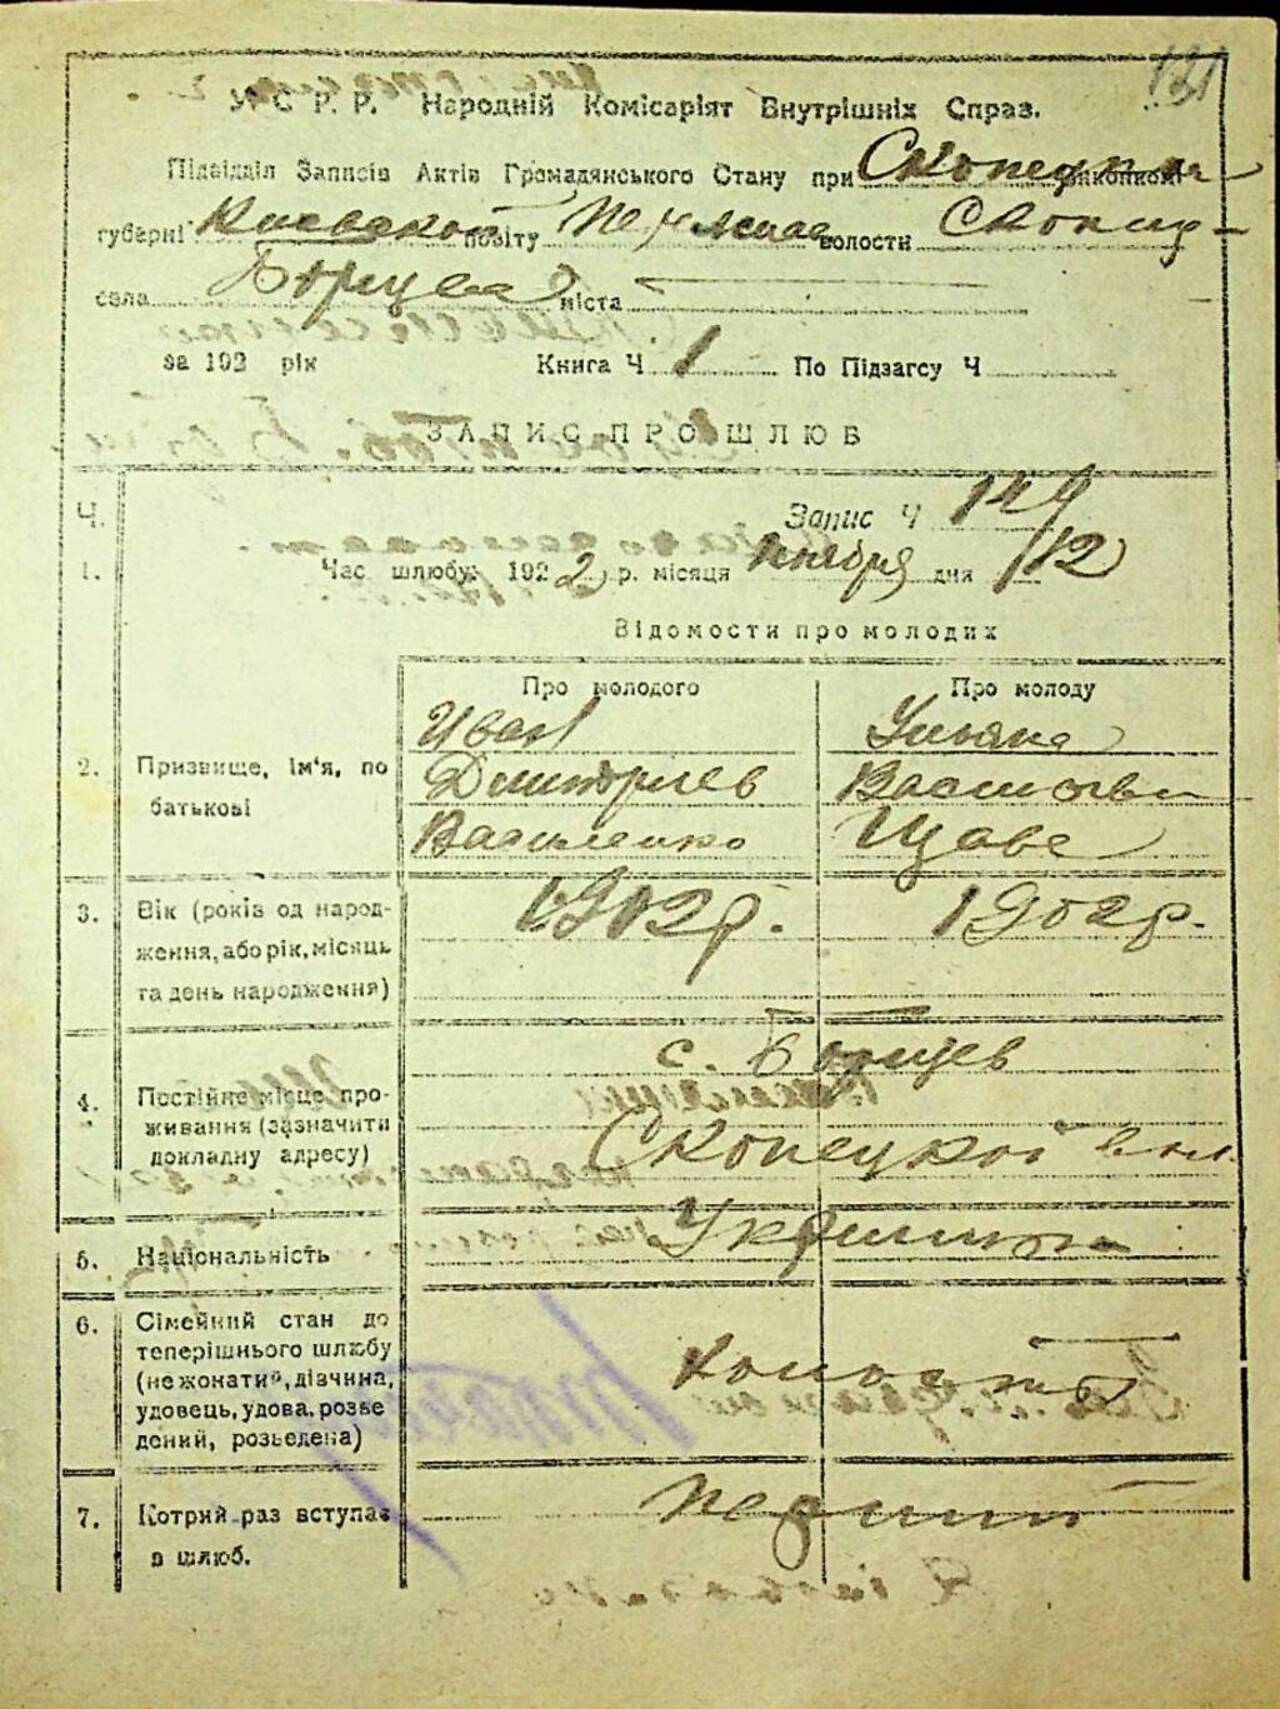 131
У. С. Р. Р. Народній Комісаріят Внутрішніх Справ.
Підвідділ Записів Актів Громадянського Стану при Скопецком виконкомі
губерні Киевской повіту волости Скопец-
села Борщев міста
за 192 рік Книга Ч. 1 По Підзагсу Ч
ЗАПИС ПРО ШЛЮБ
Ч. Запис Ч 149
1. Час шлюбу: 1922 р. місяця ноября дня 12
Відомости про молодих
Про молодого Про молоду
Иван Ульяна
2. Призвище, ім'я, по Дмитриев Васильева
батькові Василенко Щава
3. Вік (років од народ- 1902 р. 1902 р.
ження, або рік, місяць
та день народження)
с. Борщев
4. Постійне місце про-
живання (зазначити Скопецкой вол.
докладну адресу)
5. Національність
6. Сімейний стан до
теперішнього шлюбу
(не жонатий, дівчина, холост
удовець, удова, розве
дений, розведена)
7. Котрий раз вступає первый
в шлюб.